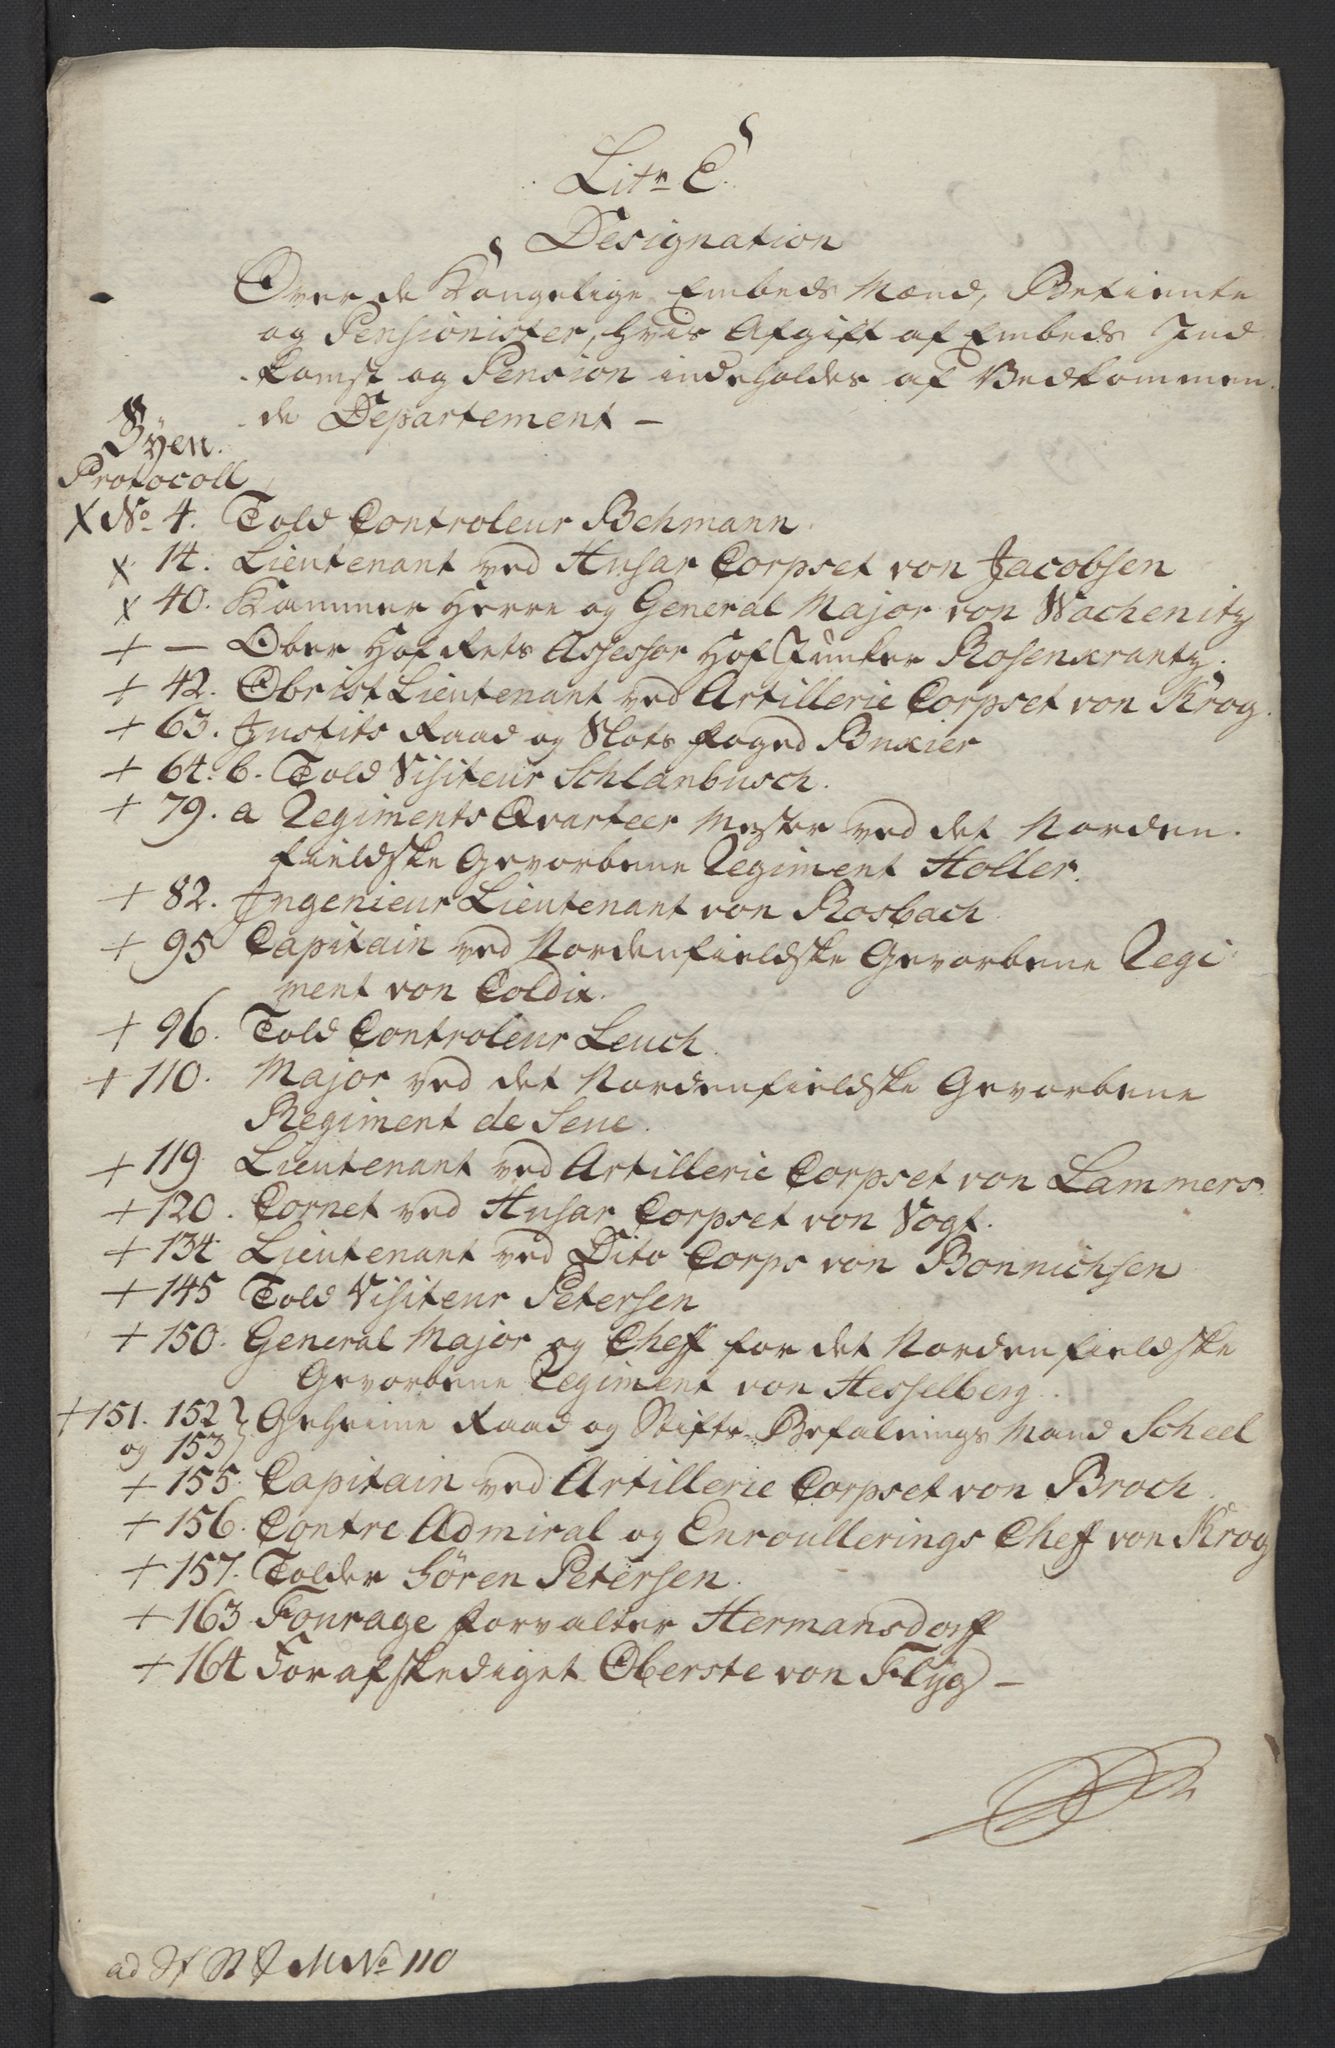 Litr C.
Designation
Over de Kongelige Embeds Mænd, Betiente
og Pensionister, hvis Afgift af Embeds Ind
komst og Pension indeholdes af Vedkommen
de Departement —
Byen.
Protocoll
X No 4. Told Controleur Behmann.
x 14. Lieutenant ved Husar Corpset von Jacobsen
x 40. Kammer Herre og General Major von Wachenitz
+ — Ober Hof Rets Assessor Hof Junker Rosenkrantz.
+ 42. Obrist Lieutenant ved Artillerie Corpset von Krog.
+ 63. Justits Raad og Slots Foged Buxier
+ 64. b. Told Visiteur Schlanbusch.
+ 79. a Regiments Qvarteer Mester ved det Norden
fieldske Gevorbene Regiment Holler.
+ 82. Ingenieur Lieutenant von Rosbach.
+ 95 Capitain ved Nordenfieldske Gevorbene Regi
ment von Coldin.
+ 96. Told Controleur Leuch.
+ 110. Major ved det Nordenfieldske Gevorbene
Regiment de Seue.
+ 119 Lieutenant ved Artillerie Corpset von Lammers.
+ 120. Cornet ved Husar Corpset von Vogt.
+ 134 Lieutenant ved Dito Corps von Bonnichsen
+ 145 Told Visiteur Petersen
+ 150. General Major og Cheff for det Nordenfieldske
Gevorbene Regiment von Hesselberg.
+ 151. 152 } Geheime Raad og Stifts Befalnings Mand Scheel
og 153
+ 155. Capitain ved Artillerie Corpset von Broch.
+ 156. Contre Admiral og Enroullerings Cheff von Krog
+ 157. Tolder Sören Petersen.
+ 163 Fourage Forvalter Hermansdorff
+ 164 For afskediget Oberste von Flyg —
ad No 110